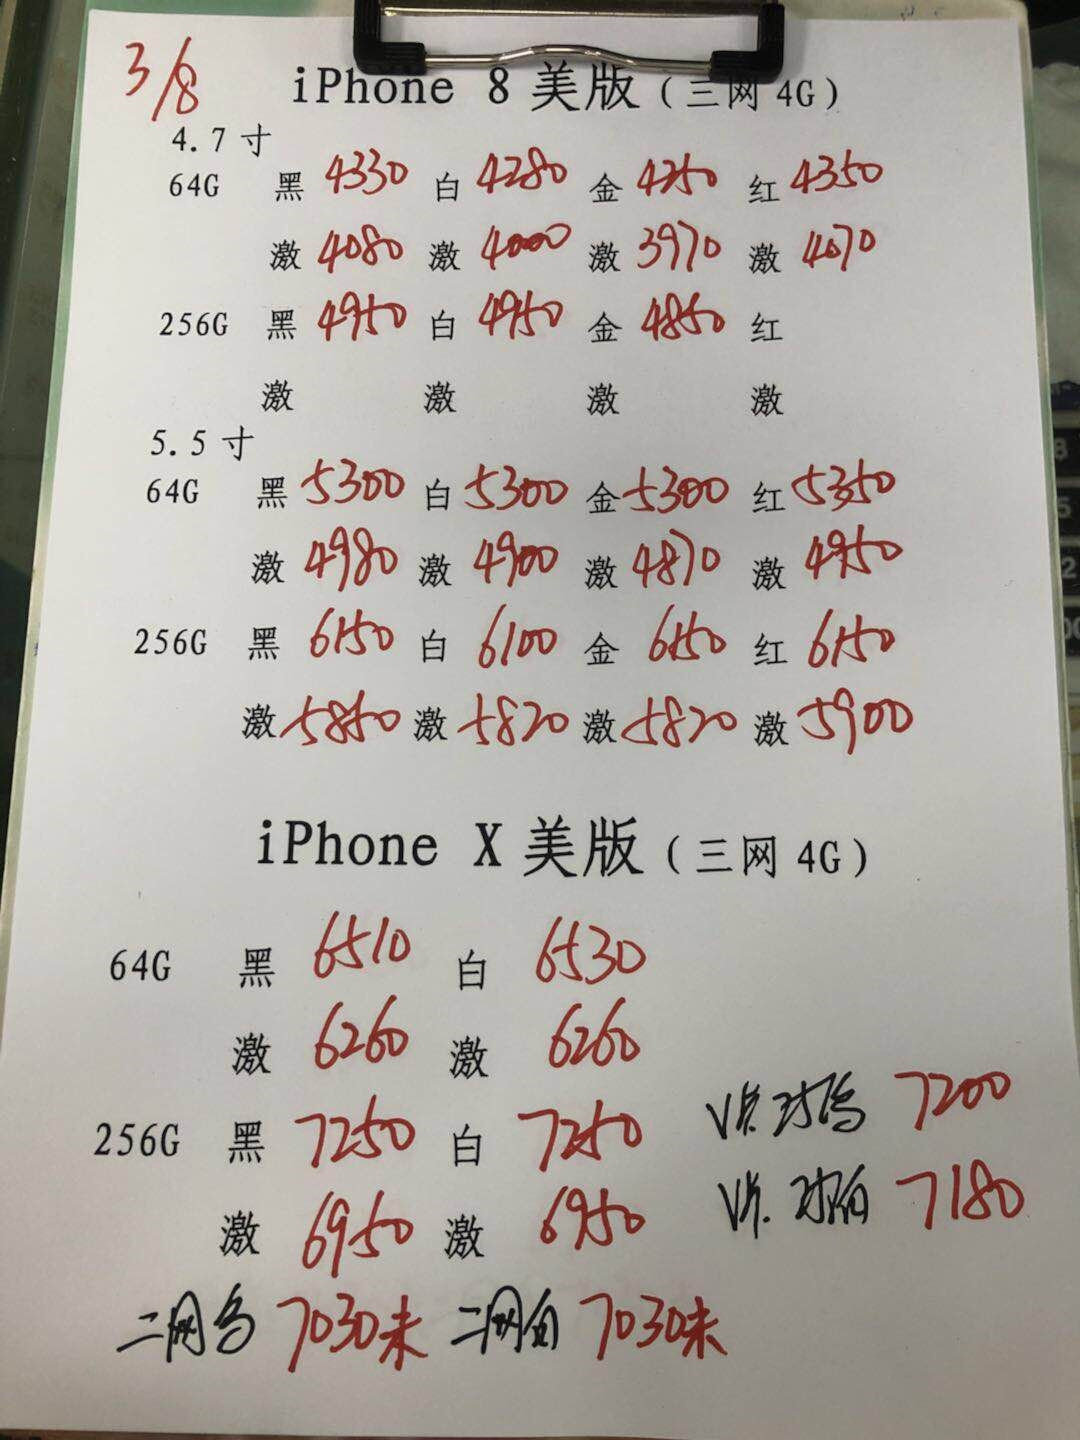 3/8
iPhone 8 美版（三网 4G）
4.7 寸
64G 黑 4330 白 4280 金 4250 红 4350
激 4080 激 4000 激 3970 激 4070
256G 黑 4950 白 4950 金 4850 红
激 激 激 激
5.5 寸
64G 黑 5300 白 5300 金 5300 红 5350
激 4980 激 4900 激 4870 激 4950
256G 黑 6150 白 6100 金 6150 红 6150
激 5850 激 5820 激 5820 激 5900
iPhone X 美版（三网 4G）
64G 黑 6510 白 6530
激 6260 激 6260
256G 黑 7250 白 7250
激 6950 激 6950
7200
7180
二网乌 7030未 二网白 7030未